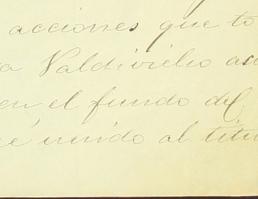 acciones que to
a Valdivielso acc
en el fundo del
é unido al títu